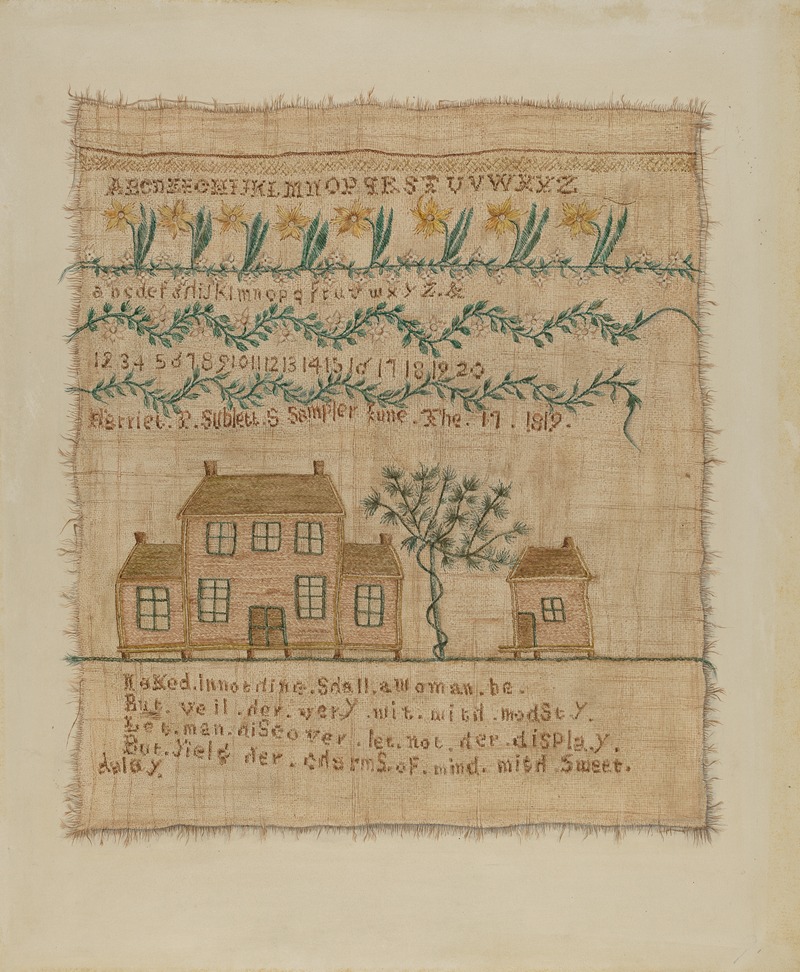 ABCDEFGHIJKLMNOPQRSTUVWXYZ
abcdefghijklmnopqrstuvwxyz.&
12 34 5678910111213 141516 17 18 19 20
Harriet. P. Sublett. S Sampler June. The. 17. 1819.
Naked. In nothing. Shall. a Woman. be.
But. veil. her. very. wit. with. modsty.
Let. man. discover. let. not. her. display.
But. Yield her. charms. of. mind. with Sweet.
delay